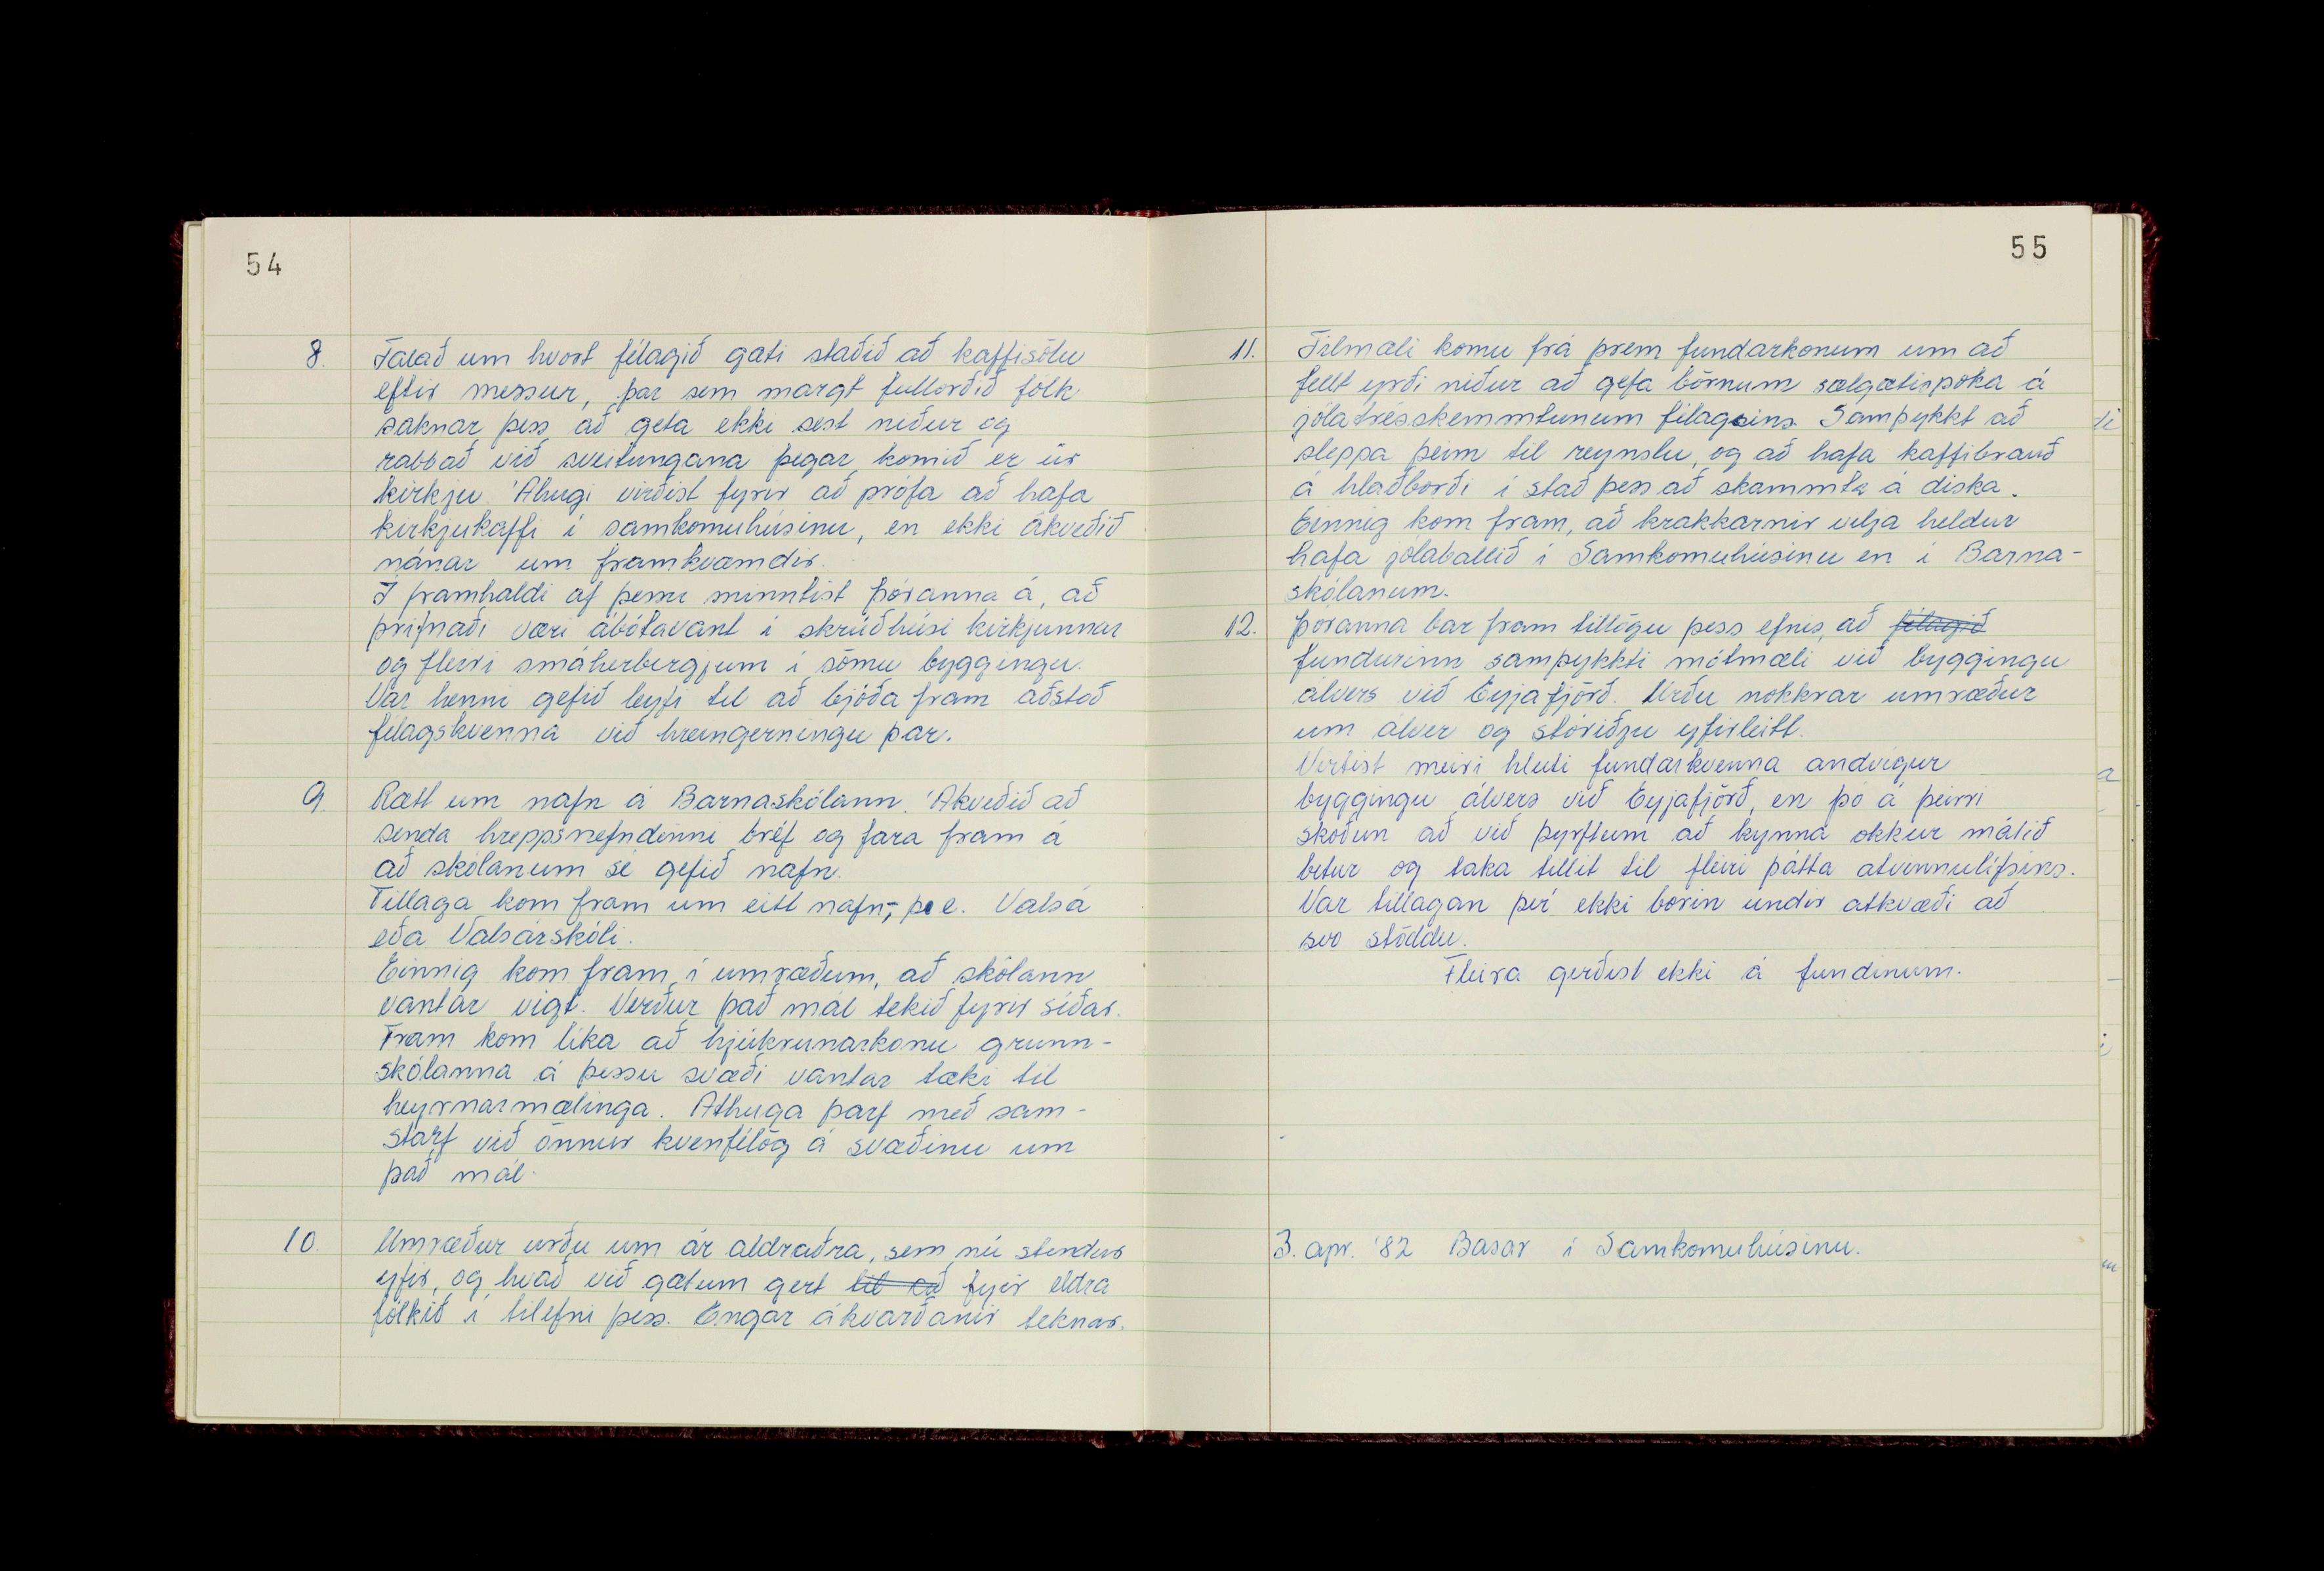 54
8. Talað um hvort félagið gæti staðið að kaffisölu
eftir messur, þar sem margt fullorðið fólk
saknar þess að geta ekki sest niður og
rabbað við sveitungana þegar komið er úr
kirkju. Áhugi virðist fyrir að prófa að hafa
kirkjukaffi í samkomuhúsinu, en ekki ákveðið
nánar um framkvæmdir.
Í framhaldi af þessu minntist Þóranna á, að
þrifnaði væri ábótavant í skrúðhúsi kirkjunnar
og fleiri smáherbergjum í sömu byggingu.
Var henni gefið leyfi til að bjóða fram aðstoð
félagskvenna við hreingerningu þar.
9. Rætt um nafn á Barnaskólann. Ákveðið að
senda hreppsnefndinni bréf og fara fram á
að skólanum sé gefið nafn.
Tillaga kom fram um eitt nafn, þ.e. Valsá
eða Valsárskóli.
Einnig kom fram í umræðum, að skólann
vantar vigt. Verður það mál tekið fyrir síðar.
Fram kom líka að hjúkrunarkonu grunn-
skólanna á þessu svæði vantar tæki til
heyrnarmælinga. Athuga þarf með sam-
starf við önnur kvenfélög á svæðinu um
það mál.
10. Umræður urðu um ár aldraðra, sem nú stendur
yfir, og hvað við gætum gert til að fyir eldra
fólkið í tilefni þess. Engar ákvarðanir teknar.
55
11. Tilmæli komu frá þrem fundarkonum um að
fellt yrði niður að gefa börnum sælgætispoka á
jólatrésskemmtunum félagsins. Samþykkt að
sleppa þeim til reynslu, og að hafa kaffibrauð
á hlaðborði í stað þess að skammta á diska.
Einnig kom fram, að krakkarnir vilja heldur
hafa jólaballið í Samkomuhúsinu en í Barna-
skólanum.
12. Þóranna bar fram tillögu þess efnis, að félagið
fundurinn samþykkti mótmæli við byggingu
álvers við Eyjafjörð. Urðu nokkrar umræður
um álver og stóriðju yfirleitt.
Virtist meiri hluti fundarkvenna andvígur
byggingu álvers við Eyjafjörð, en þó á þeirri
skoðun að við þyrftum að kynna okkur málið
betur og taka tillit til fleiri þátta atvinnulífsins.
Var tillagan því ekki borin undir atkvæði að
svo stöddu.
Fleira gerðist ekki á fundinum.
3. apr. '82 Basar í Samkomuhúsinu.